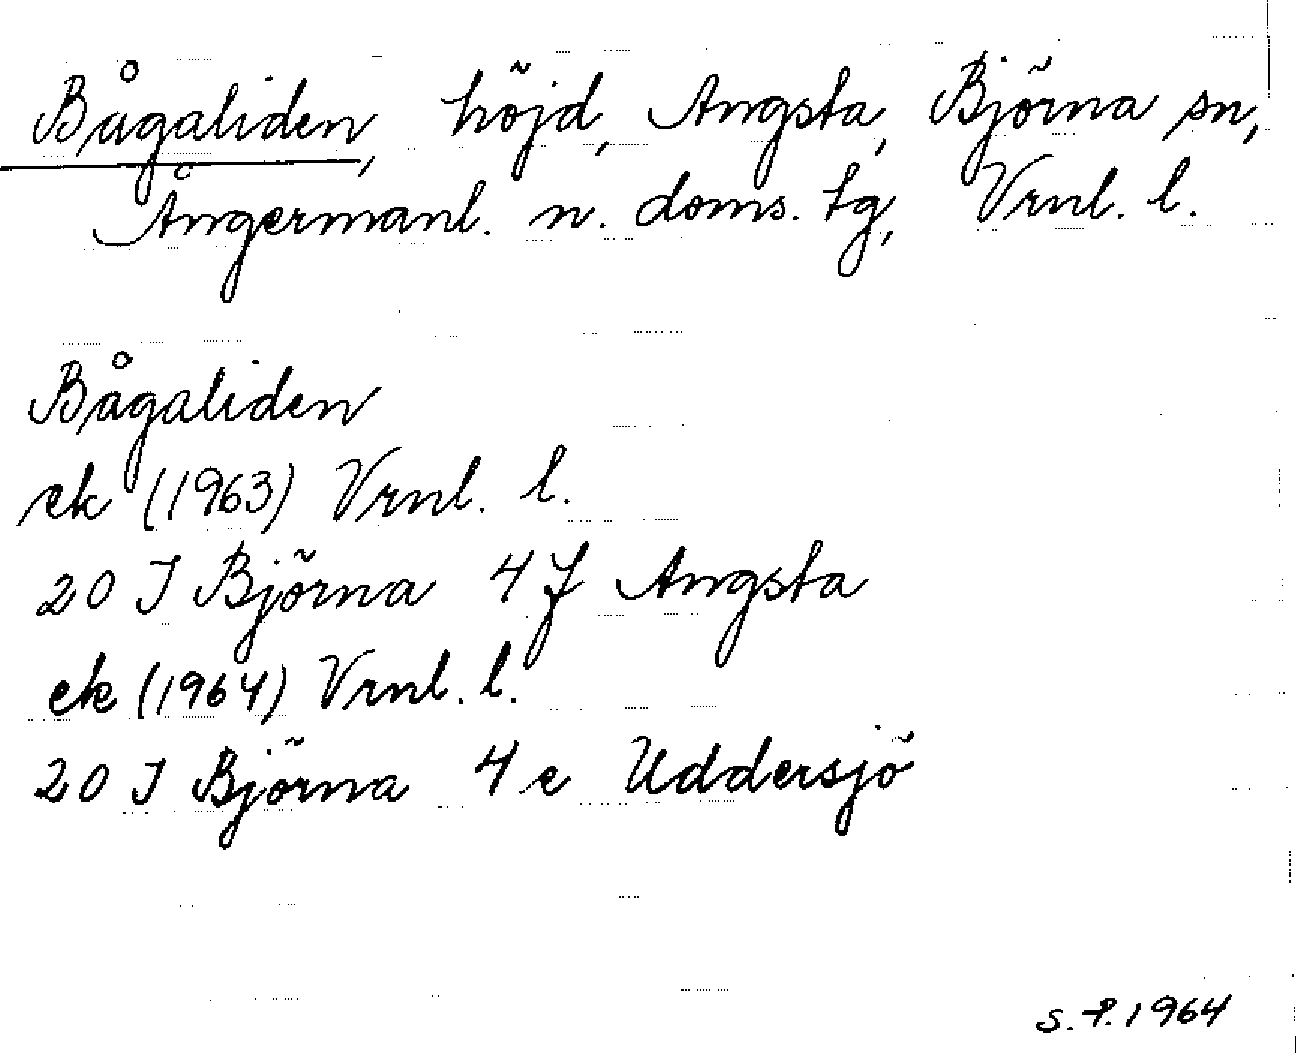 Bågaliden, höjd, Angsta, Björna sn,
Ångermanl. n. doms. tg, Vrnl. l.
Bågaliden
ek (1963) Vrnl. l.
20 I Björna 4 f Angsta
ek (1964) Vrnl. l.
20 I Björna 4 e Uddersjö
S. P. 1964